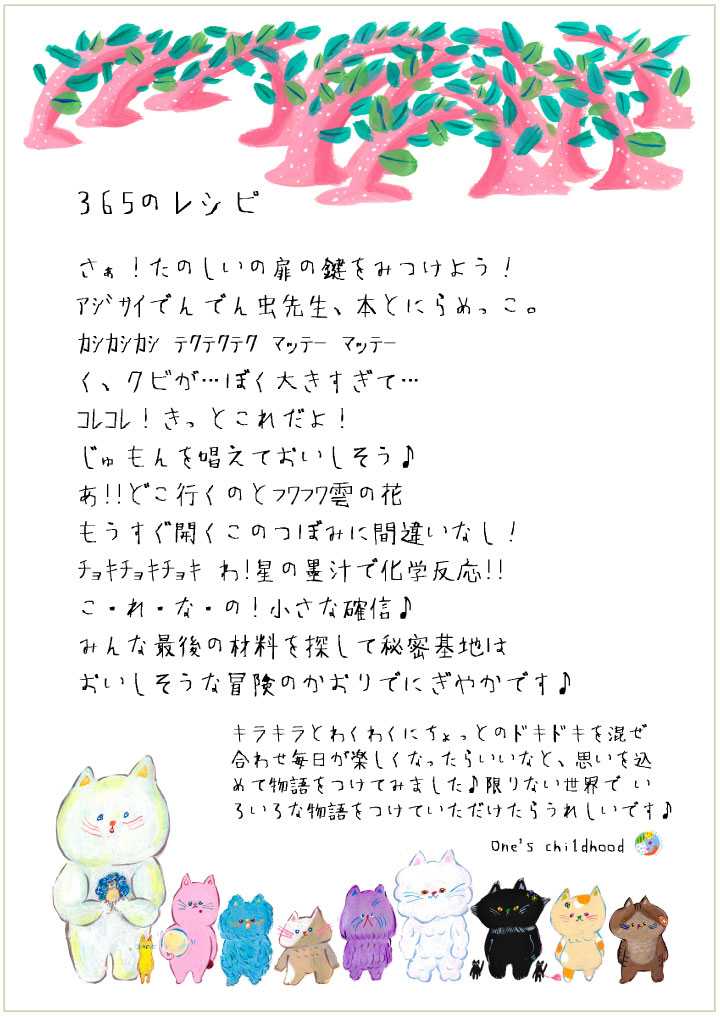 365のレシピ
さぁ！たのしいの扉の鍵をみつけよう！
ｱｼﾞｻｲでんでん虫先生、本とにらめっこ。
ｶｼｶｼｶｼ ﾃｸﾃｸﾃｸ ﾏｯﾃｰ ﾏｯﾃｰ
く、クビが…ぼく大きすぎて…
ｺﾚｺﾚ！きっとこれだよ！
じゅもんを唱えておいしそう♪
あ!!どこ行くのとﾌﾜﾌﾜ雲の花
もうすぐ開くこのつぼみに間違いなし！
ﾁｮｷﾁｮｷﾁｮｷ わ!星の墨汁で化学反応!!
こ・れ・な・の！小さな確信♪
みんな最後の材料を探して秘密基地は
おいしそうな冒険のかおりでにぎやかです♪
キラキラとわくわくにちょっとのドキドキを混ぜ
合わせ毎日が楽しくなったらいいなと、思いを込
めて物語をつけてみました♪限りない世界で い
ろいろな物語をつけていただけたらうれしいです♪
One's childhood